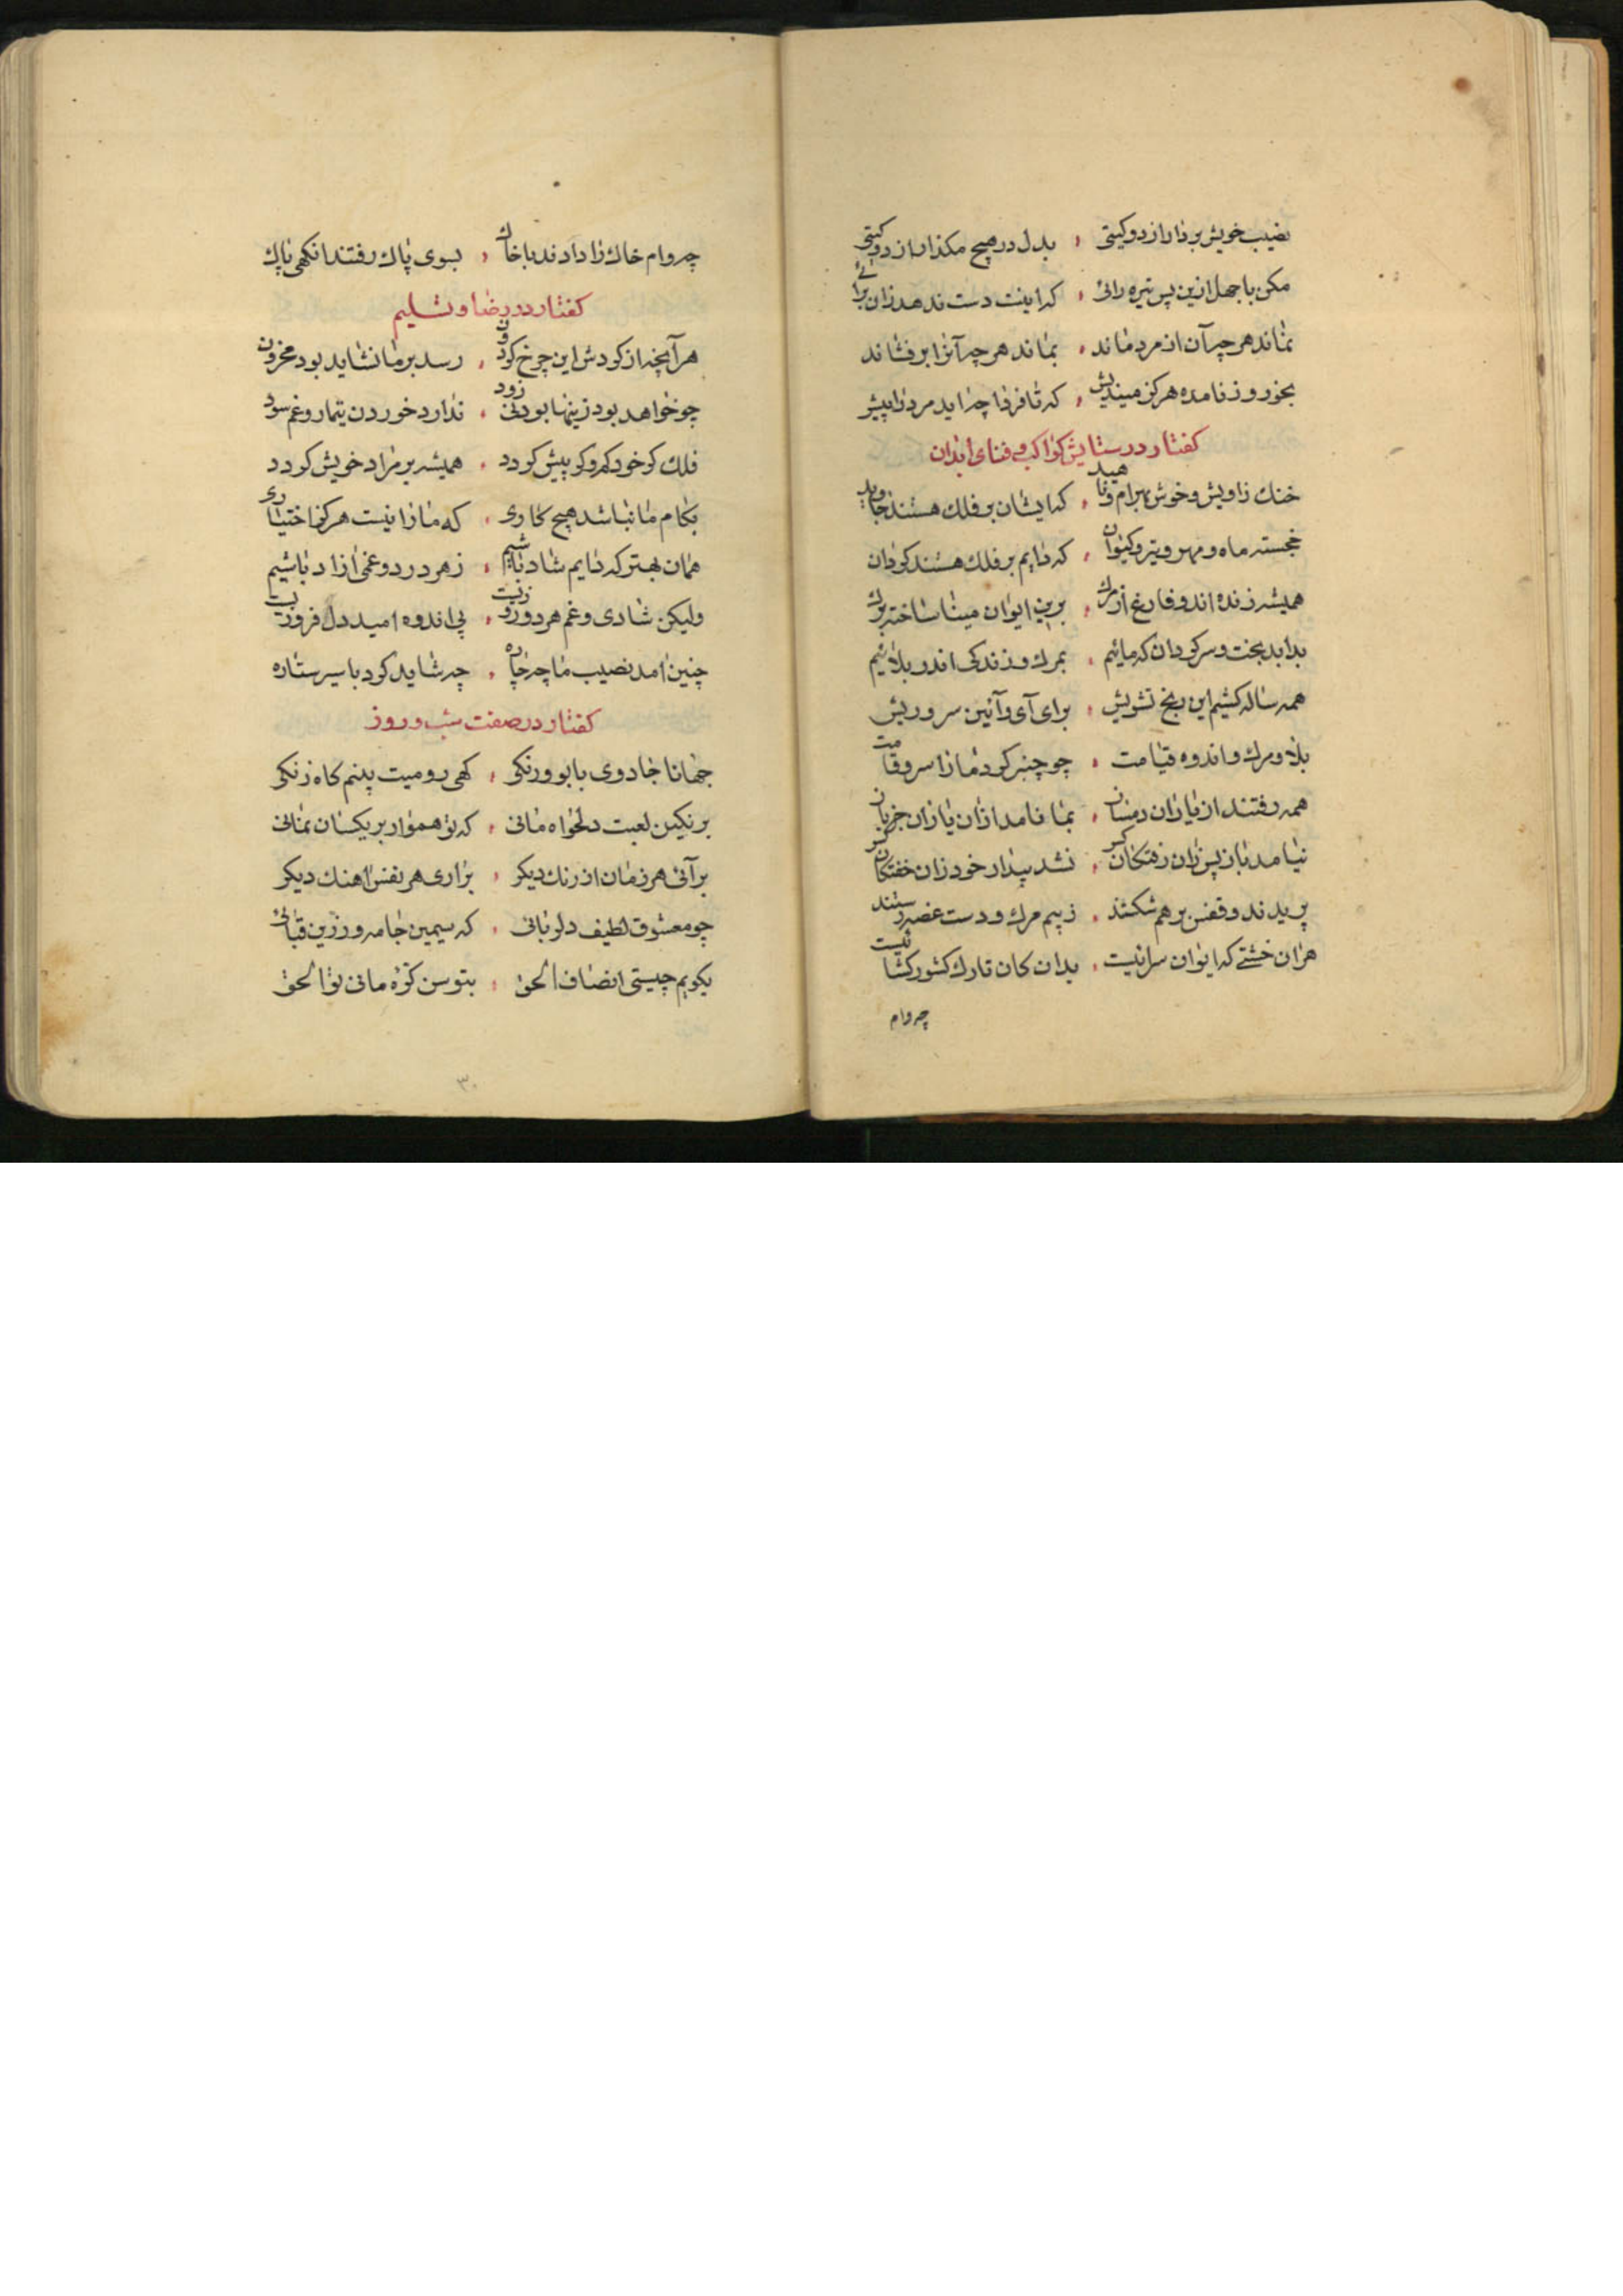 نصیب خویش بردار از دو کیتی ، بدل در هیچ مکذار از دو کیتی
مکن با جهل ازین پس تیره رائی ، که اینت دست ندهد زان برائی
نماند هر چه آن از مرد ماند ، بماند هر چه آنرا بر فشاند
بخور روز نامده هرکز میندیش ، که تا فردا چه اید مرد را پیش
کفتار در ستایش کواکب و فنای ابدان
خنک زاویش و خوش بهرام و ناهید ، که ایشان بر فلک هستند جاوید
خجسته ماه و مهر و تیر و کیوان ، که دایم بر فلک هستند کردان
همیشه زنده اند و فارغ از مرک ، برین ایوان مینا ساخته برک
بدا بد بخت و سرکردان که مائیم ، بمرک و زندکی اندر بلائیم
همه ساله کشیم این رنج تشویش ، برای آی و آئین سر و ریش
بلا و مرک و اندوه قیامت ، چو چنبر کرد ما را سرو قامت
همه رفتند از یاران دمساز ، بما نامد ازان یاران خبر باز
نیامد باز پس زان رفتکان کس ، نشد بیدار خود زان خفتکان کس
پریدند و قفس بر هم شکستند ، ز بیم مرک و دست غصه رستند
هران خشتی که ایوان سرائیست ، بدان کان تارک کشور کشائیست
چه وام
چه وام خاک را دادند با خاک ، بسوی پاک رفتند انکهی پاک
کفتار در رضا و تسلیم
هر آنچه از کردش این چرخ کردون ، رسد بر ما نشاید بود محزون
چو خواهد بود زینها بودنی زود ، ندارد خوردن تیمار و غم سود
فلک کر خود کم و کر بیش کردد ، همیشه بر مراد خویش کردد
بکام ما نباشد هیچ کاری ، که ما را نیست هرکز اختیاری
همان بهتر که دایم شاد باشیم ، ز هر درد و غمی ازاد باشیم
ولیکن شادی و غم هر دو روزیست ، پی اندوه امید دل فروزیست
چنین امد نصیب ما چه چاره ، چه شاید کرد با سیر ستاره
کفتار در صفت شب و روز
جهانا جادوی با بو و رنکی ، کهی رومیت بینم کاه زنکی
برنکین لعبت دلخواه مانی ، که تو هموار بر یکسان نمانی
بر آئی هر زمان از رنک دیکر ، براری هر نفس اهنک دیکر
چو معشوق لطیف دلربائی ، که سیمین جامه و زرین قبائی
بکویم چیستی انصاف الحق ، بتوسن کرّه مانی تو الحق
۳۰